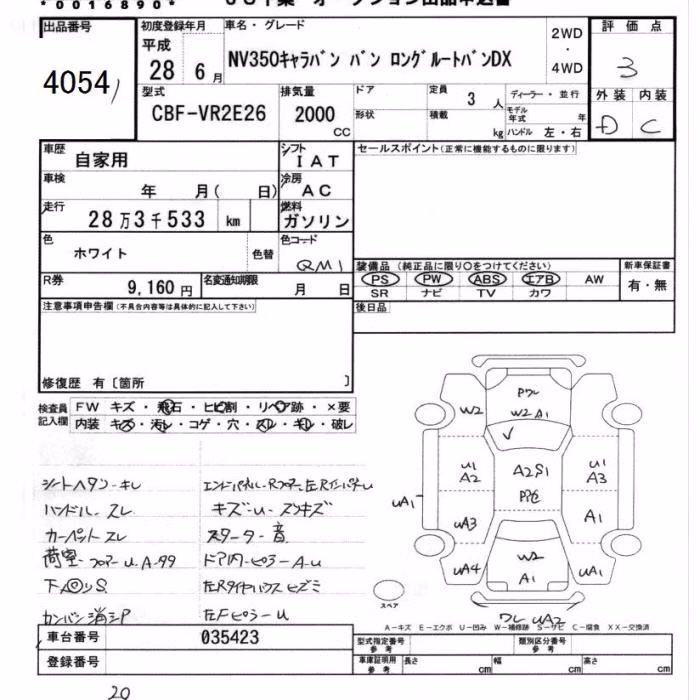 *0016890*
出品番号
4054
初度登録年月
平成
28 6月
車名・グレード
NV350キャラバン バン ロングルートバンDX
2WD
・
4WD
評価点
3
外装 内装
D C
型式
CBF-VR2E26
排気量
2000
CC
ドア
形状
定員 3 人
積載 kg
ディーラー・並行
モデル年式 年
ハンドル 左・右
車歴
自家用
シフト
IAT
車検
年 月( 日)
冷房
AC
走行
28万3千533 km
燃料
ガソリン
色
ホワイト
色替
色コード
QM1
R券
9,160円
名変通知期限
月 日
セールスポイント(正常に機能するものに限ります)
装備品(純正品に限り○をつけてください)
PS PW ABS エアB AW
SR ナビ TV カワ
新車保証書
有・無
後日品
注意事項申告欄(不具合内容等は具体的に記入して下さい)
修復歴 有〔箇所 〕
検査員
記入欄
FW キズ・飛石・ヒビ割・リペア跡・×要
内装 キズ・汚レ・コゲ・穴・スレ・キレ・破レ
シートヘタリ-キレ
ハンドル-スレ
カーペットスレ
荷室-フロアーU.A-99
キズ-U-ズンキズ
スターター音
ドア内-ピラーA-U
左Fピラー-U
カンバン消シP
Pワレ
W2
W2 A1
U1
A2
A2S1
U1
A3
UA1
UA3
A1
UA4
W2
A1
UA1
ワレ UA2
スペア
A-キズ E-エクボ U-凹み W-補修跡 S-サビ C-腐食 XX-交換済
車台番号
035423
登録番号
型式指定番号
参考
類別区分番号
参考
車庫証明用
参考
長さ cm
幅 cm
高さ cm
20